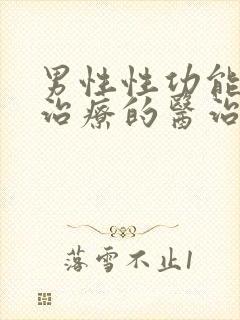 男性性功能
治療的醫治
落雪不止1